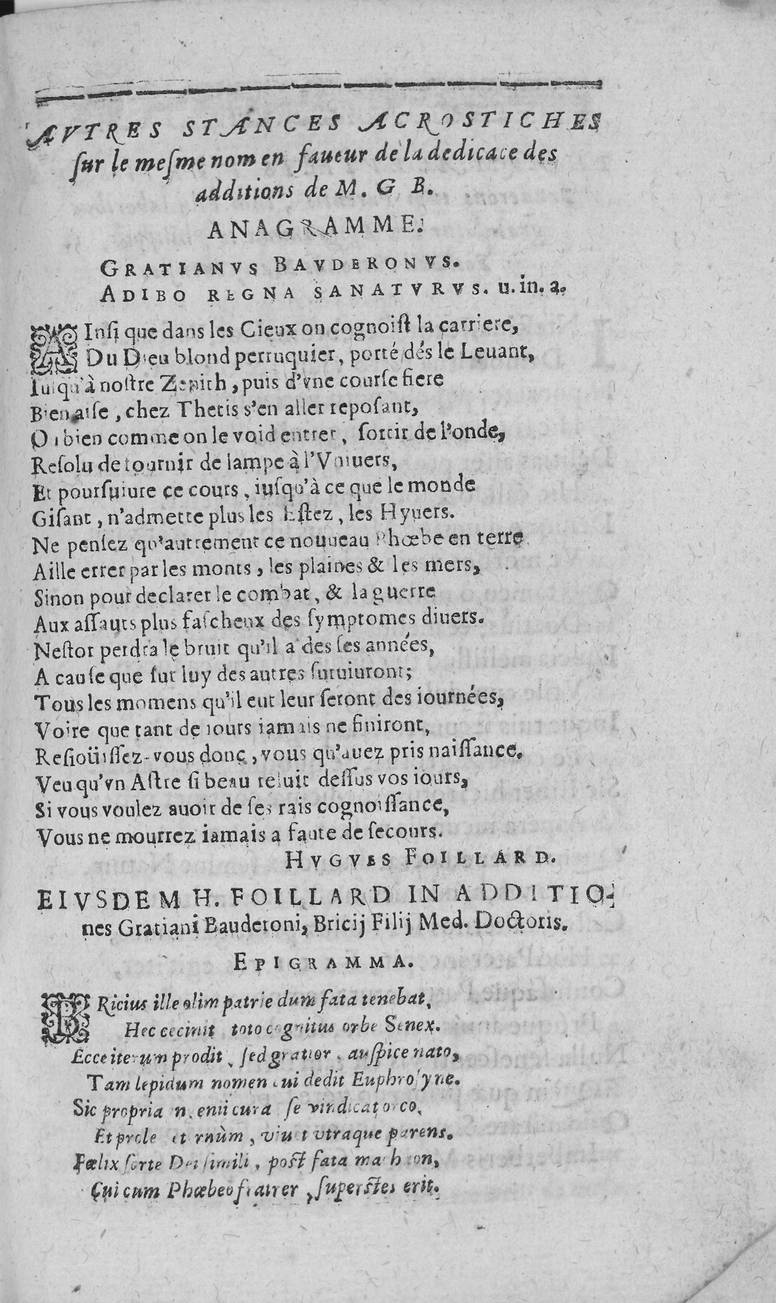 AVTRES STANCES ACROSTICHES
ſur le meſme nom en faueur de la dedicace des
additions de M. G B.
ANAGRAMME.
GRATIANVS BAVDERONVS.
ADIBO REGNA SANATVRVS. u. in. a.
AInſi que dans les Cieux on cognoiſt la carriere,
Du Dieu blond perruquier, porté dés le Leuant,
Iuſqu'à noſtre Zenith, puis d'vne courſe fiere
Bien aiſe, chez Thetis s'en aller repoſant,
Ou bien comme on le void entrer, ſortir de l'onde,
Reſolu de tournir de lampe à l'Vniuers,
Et pourſuiure ce cours, iuſqu'à ce que le monde
Giſant, n'admette plus les Eſtez, les Hyuers.
Ne penſez qu'autrement ce nouueau Phœbe en terre
Aille errer par les monts, les plaines & les mers,
Sinon pour declarer le combat, & la guerre
Aux aſſauts plus faſcheux des ſymptomes diuers.
Neſtor perdra le bruit qu'il a des ſes années,
A cauſe que ſur luy des autres ſuruiuront;
Tous les momens qu'il eut leur ſeront des iournées,
Voire que tant de iours iamais ne finiront,
Reſioüiſſez-vous donc, vous qu'auez pris naiſſance.
Veu qu'vn Aſtre ſi beau reluit deſſus vos iours,
Si vous voulez auoir de ſes rais cognoiſſance,
Vous ne mourrez iamais a faute de ſecours.
HVGVES FOILLARD.
EIVSDEM H. FOILLARD IN ADDITIO-
nes Gratiani Bauderoni, Bricij Filij Med. Doctoris.
EPIGRAMMA.
BRicius ille olim patrie dum fata tenebat,
Hec cecinit toto cognitus orbe Senex.
Ecce iterum prodit, ſed gratior, auſpice nato,
Tam lepidum nomen cui dedit Euphroſyne.
Sic propria ſe vindicat orco,
Et prole æternùm, viuet vtraque parens.
Fœlix ſorte Dei ſimili, poſt fata machaon,
Cui cum Phœbeo fratrer, ſuperſtes erit.